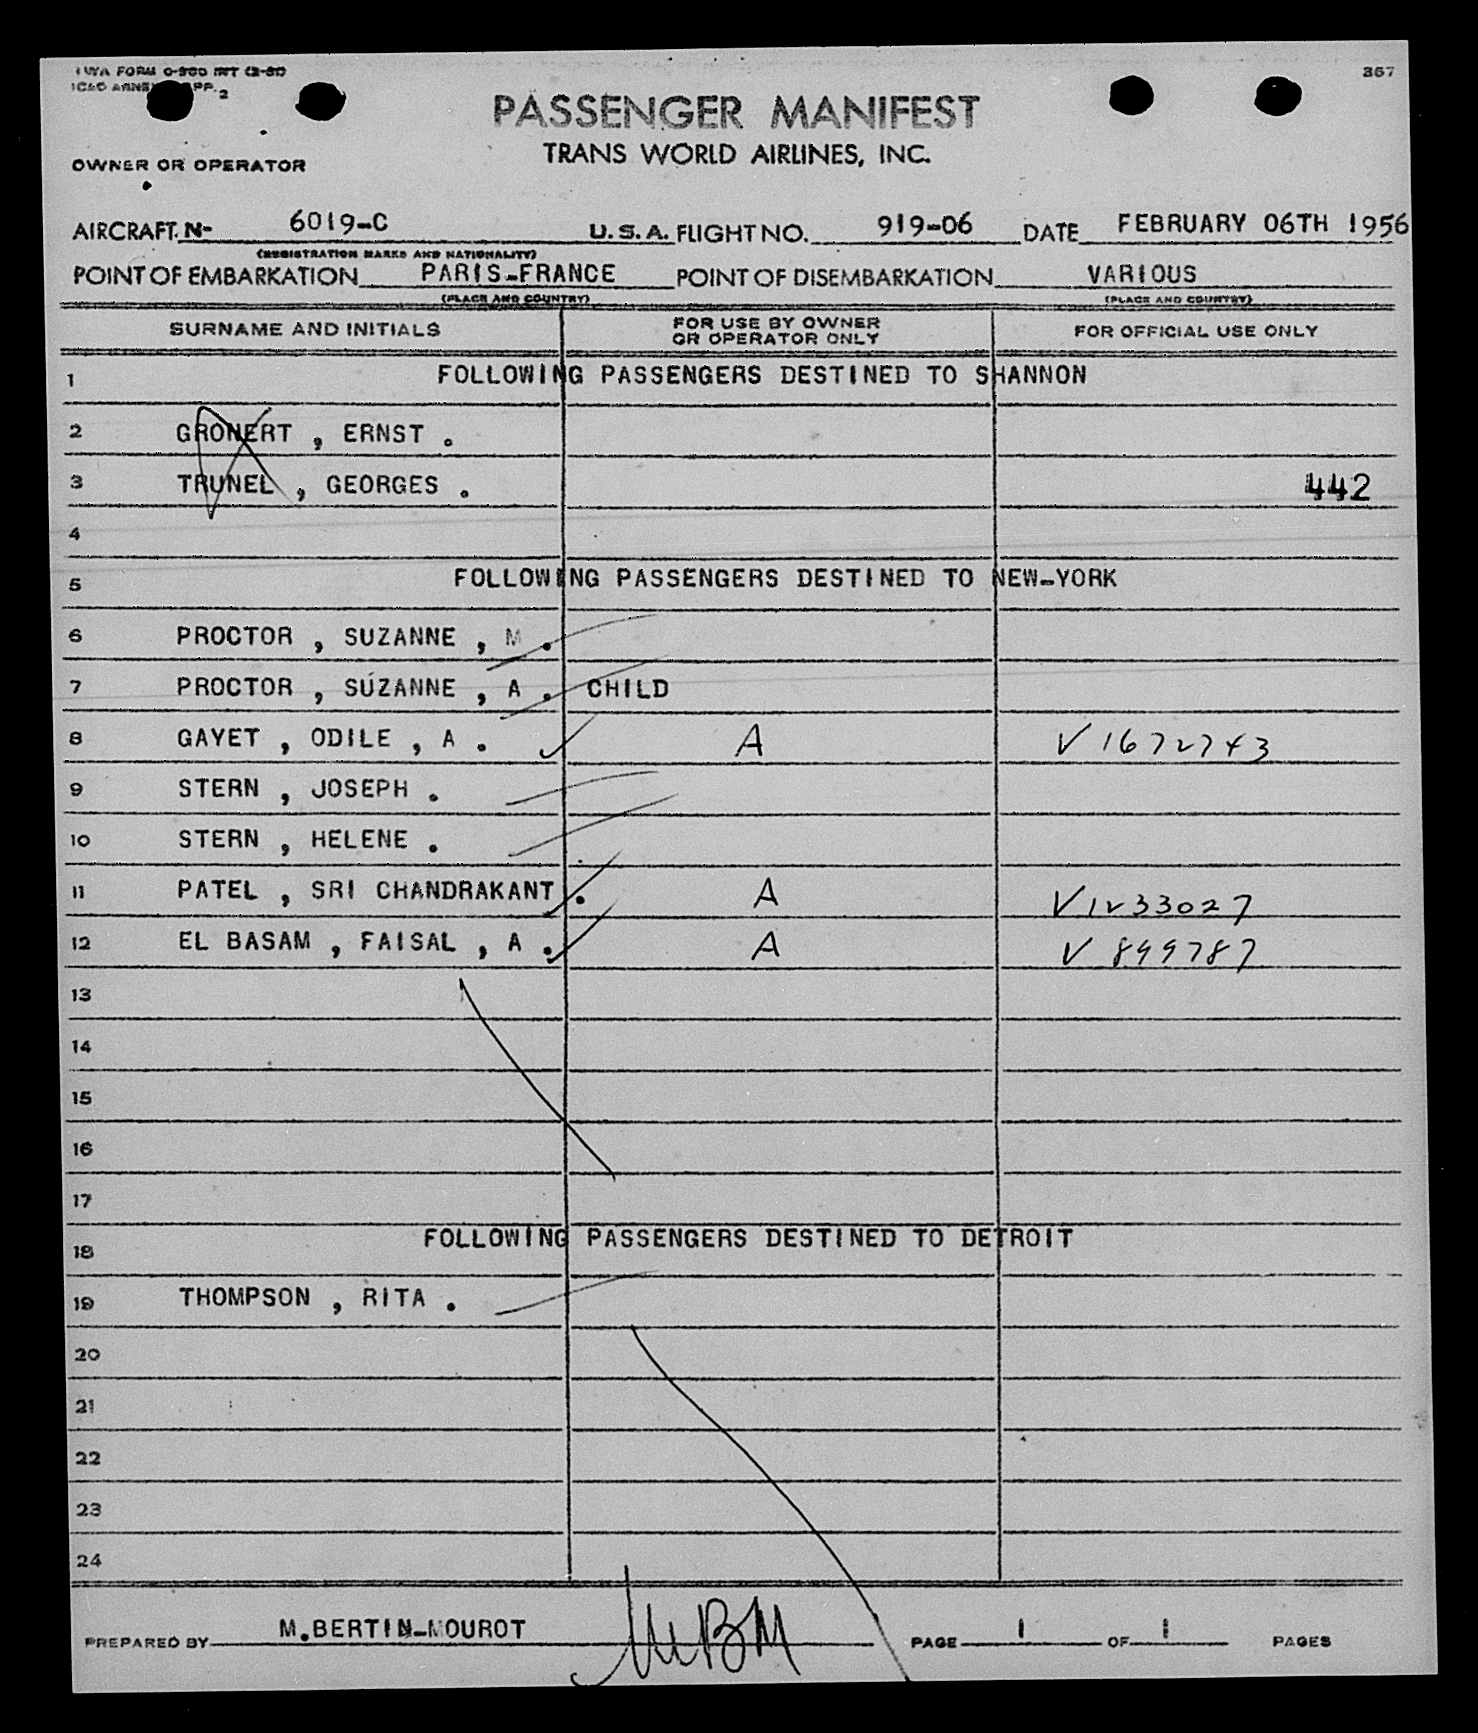 TWA FORM O-900 INT (2-51)
ICAO ANNEX APP. 2
367
PASSENGER MANIFEST
TRANS WORLD AIRLINES, INC.
OWNER OR OPERATOR
AIRCRAFT. N- 6019-C U.S.A. FLIGHT NO. 919-06 DATE FEBRUARY 06TH 1956
(REGISTRATION MARKS AND NATIONALITY)
POINT OF EMBARKATION PARIS-FRANCE POINT OF DISEMBARKATION VARIOUS
(PLACE AND COUNTRY) (PLACE AND COUNTRY)
SURNAME AND INITIALS FOR USE BY OWNER OR OPERATOR ONLY FOR OFFICIAL USE ONLY
1 FOLLOWING PASSENGERS DESTINED TO SHANNON
2 GRONERT , ERNST .
3 TRUNEL , GEORGES . 442
4
5 FOLLOWING PASSENGERS DESTINED TO NEW-YORK
6 PROCTOR , SUZANNE , M .
7 PROCTOR , SUZANNE , A . CHILD
8 GAYET , ODILE , A . A V 1672743
9 STERN , JOSEPH .
10 STERN , HELENE .
11 PATEL , SRI CHANDRAKANT . A V 1233027
12 EL BASAM , FAISAL , A . A V 899787
13
14
15
16
17
18 FOLLOWING PASSENGERS DESTINED TO DETROIT
19 THOMPSON , RITA .
20
21
22
23
24
PREPARED BY M.BERTIN-MOUROT MBM PAGE 1 OF 1 PAGES